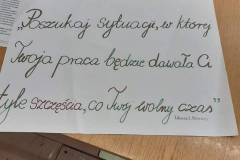 „Poszukaj sytuacji, w której
Twoja praca będzie dawała Ci
tyle szczęścia, co Twój wolny czas”